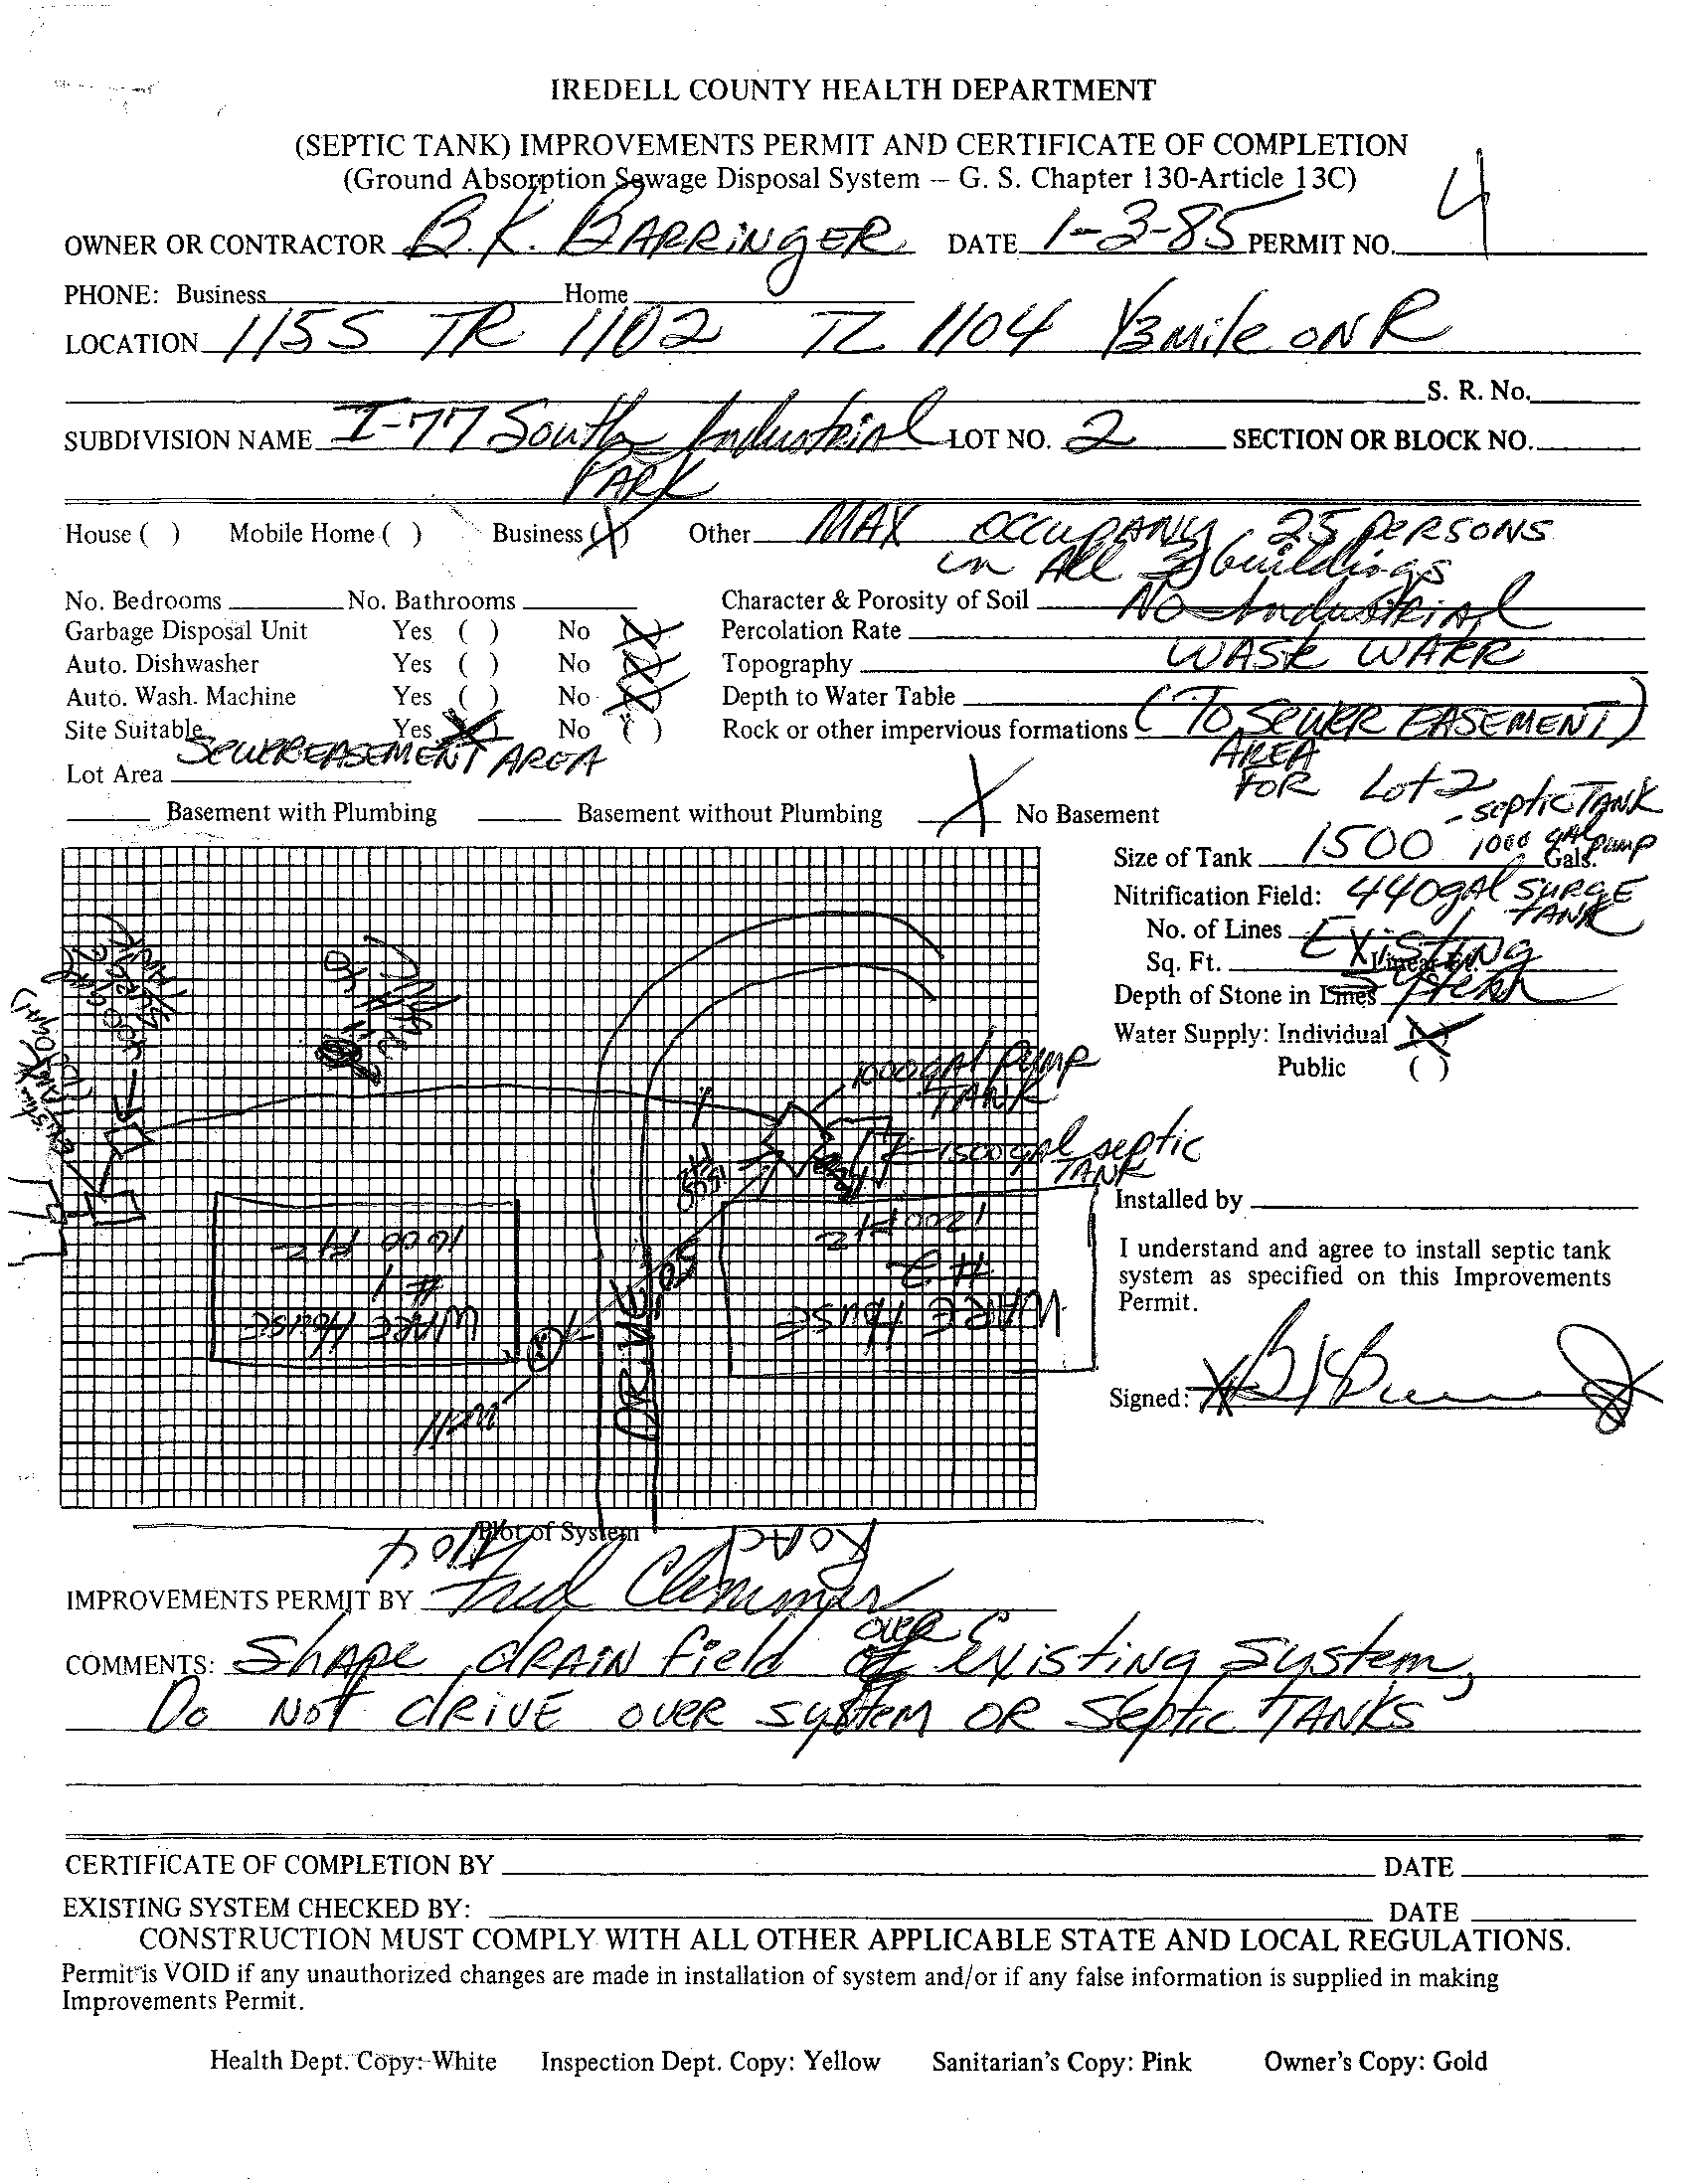 IREDELL COUNTY HEALTH DEPARTMENT
(SEPTIC TANK) IMPROVEMENTS PERMIT AND CERTIFICATE OF COMPLETION
(Ground Absorption Sewage Disposal System – G. S. Chapter 130-Article 13C)
OWNER OR CONTRACTOR B.K. BARRINGER DATE 1-3-85 PERMIT NO. 4
PHONE: Business Home
LOCATION 115S TR 1102 TL 1104 1/3 mile ON R
S. R. No.
SUBDIVISION NAME I-77 South Industrial LOT NO. 2 SECTION OR BLOCK NO.
PARK
House ( ) Mobile Home ( ) Business (X) Other MAX OCCUPANY 25 PERSONS
in All 3 buildings
No. Bedrooms No. Bathrooms Character & Porosity of Soil No Industrial
Garbage Disposal Unit Yes ( ) No (X) Percolation Rate
Auto. Dishwasher Yes ( ) No (X) Topography WASTE WATER
Auto. Wash. Machine Yes ( ) No (X) Depth to Water Table
Site Suitable Yes (X) No ( ) Rock or other impervious formations (TO SEWER EASEMENT)
Lot Area SEWER EASEMENT AREA AREA
FOR Lot 2
Basement with Plumbing Basement without Plumbing X No Basement
- septic TANK
Size of Tank 1500 1000 gal pump Gals.
Nitrification Field: 440 gal SURGE TANK
No. of Lines Existing
Sq. Ft. Linear Ft.
Depth of Stone in Lines System
Water Supply: Individual (X)
Public ( )
1000 gal Pump
TANK
1500 gal septic
TANK
Installed by
1600 Ft2
# 1
WARE House
1200 Ft2
# 2
WARE House
50
DRIVE
Well
I understand and agree to install septic tank
system as specified on this Improvements
Permit.
Signed: X
Plot of System
1104 ROAD
IMPROVEMENTS PERMIT BY Fred Clemmer
COMMENTS: Shape drain field over Existing System,
Do Not drive over system OR Septic TANKS
CERTIFICATE OF COMPLETION BY DATE
EXISTING SYSTEM CHECKED BY: DATE
CONSTRUCTION MUST COMPLY WITH ALL OTHER APPLICABLE STATE AND LOCAL REGULATIONS.
Permit is VOID if any unauthorized changes are made in installation of system and/or if any false information is supplied in making
Improvements Permit.
Health Dept. Copy: White Inspection Dept. Copy: Yellow Sanitarian's Copy: Pink Owner's Copy: Gold